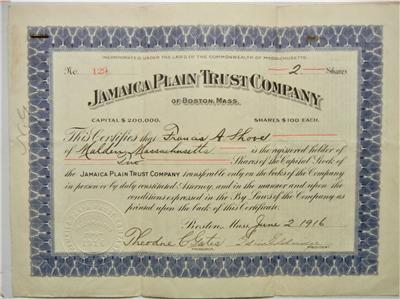 INCORPORATED UNDER THE LAWS OF THE COMMONWEALTH OF MASSACHUSETTS.
No. 129 2 Shares
JAMAICA PLAIN TRUST COMPANY
OF BOSTON, MASS.
CAPITAL $200,000. SHARES $100 EACH.
This Certifies that Francis A. Shove
of Malden, Massachusetts is the registered holder of
Two Shares of the Capital Stock of
the JAMAICA PLAIN TRUST COMPANY transferable only on the books of the Company
in person or by duly constituted Attorney, and in the manner and upon the
conditions expressed in the By Laws of the Company as
printed upon the back of this Certificate.
Boston, Mass. June 2 1916
Theodore C. Gates
TREASURER. PRESIDENT.